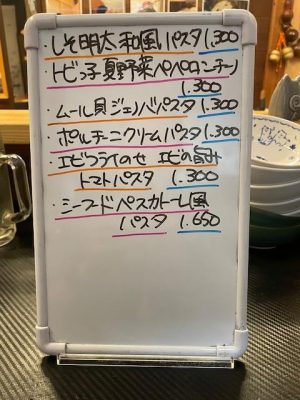 ・しそ明太和風パスタ 1.300
・トビっ子夏野菜ペペロンチーノ
1.300
・ムール貝ジェノベパスタ 1.300
・ポルチーニクリームパスタ 1.300
・エビフライのせ エビの旨み
トマトパスタ 1.300
・シーフードペスカトーレ風
パスタ 1.650